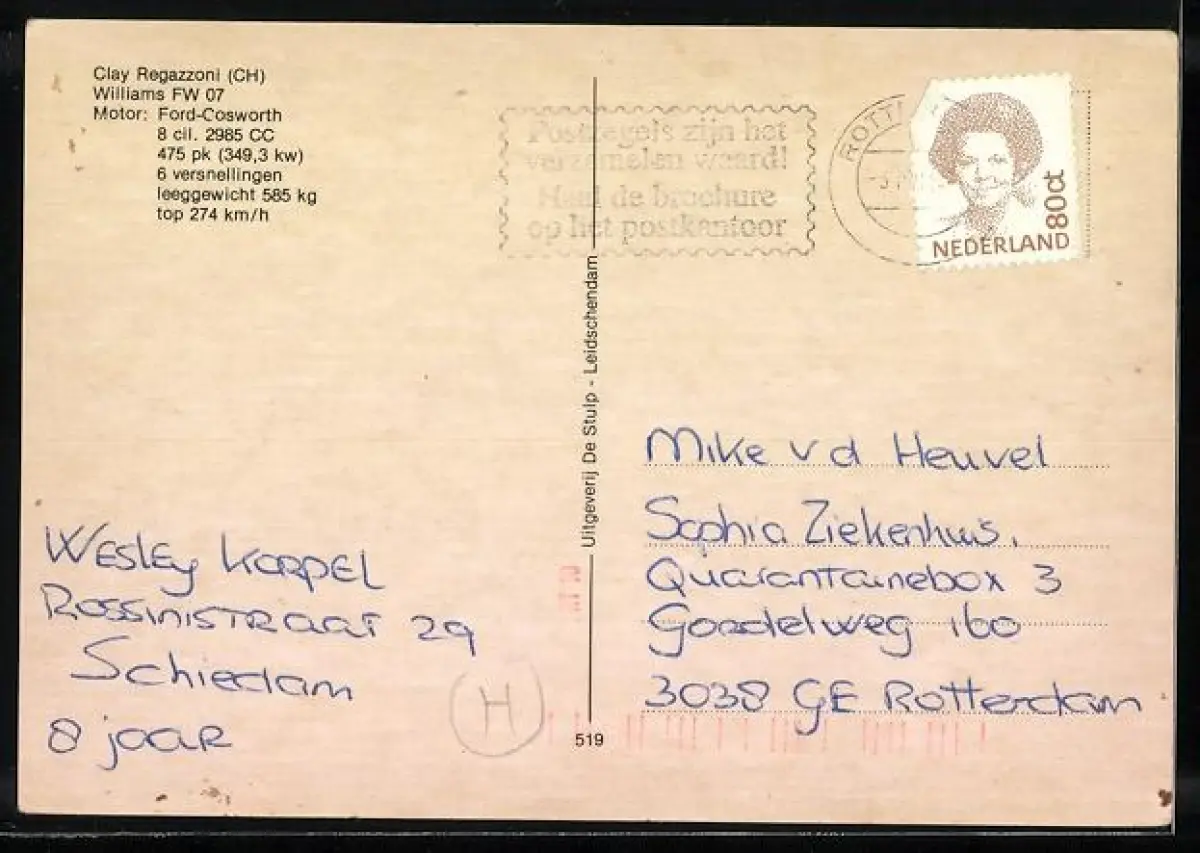 Clay Regazzoni (CH)
Williams FW 07
Motor: Ford-Cosworth
8 cil. 2985 CC
475 pk (349,3 kw)
6 versnellingen
leeggewicht 585 kg
top 274 km/h
Postzegels zijn het
verzamelen waard!
Haal de brochure
op het postkantoor
80ct
NEDERLAND
Uitgeverij De Stulp - Leidschendam
519
Mike v d Heuvel
Sophia Ziekenhuis.
Quarantainebox 3
Goordelweg 160
3038 GE Rotterdam
Wesley Karpel
Rossinistraat 29
Schiedam
8 jaar
H